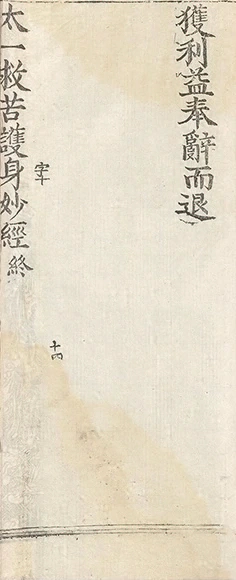 獲利益奉辭而退
字十
十四
太一救苦護身妙經終